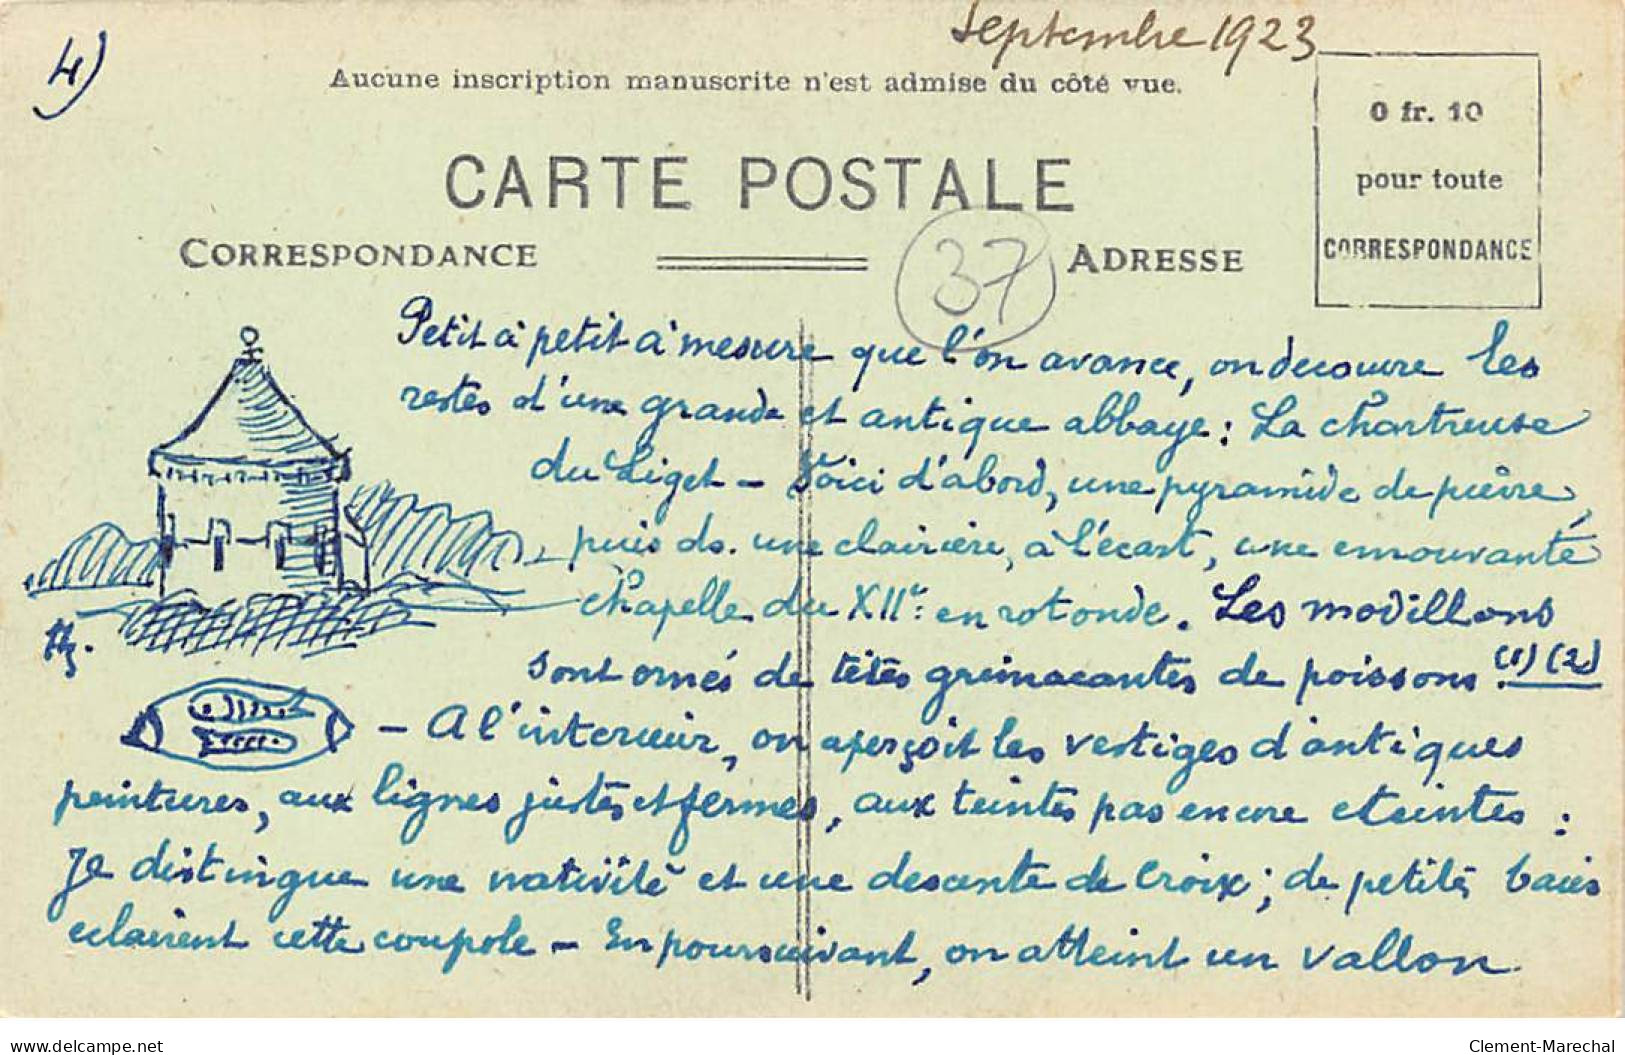 4)
Septembre 1923
Aucune inscription manuscrite n'est admise du côté vue.
0 fr. 10
pour toute
CORRESPONDANCE
CARTE POSTALE
CORRESPONDANCE
37
ADRESSE
Petit à petit à mesure que l'on avance, on decouvre les
restes d'une grande et antique abbaye : La Chartreuse
du Liget - Voici d'abord, une pyramide de pierre,
puis ds. une clairière, à l'écart, une emouvante
Chapelle du XIIe: en rotonde. Les modillons
sont ornés de têtes grimacantes de poissons. (1) (2)
- A l'interieur, on aperçoit les vestiges d'antiques
peintures, aux lignes justes et fermes, aux teintes pas encore eteintes :
Je distingue une nativité et une descente de Croix ; de petites baies
eclairent cette coupole - En poursuivant, on atteint un vallon
www.delcampe.net
Clement-Marechal